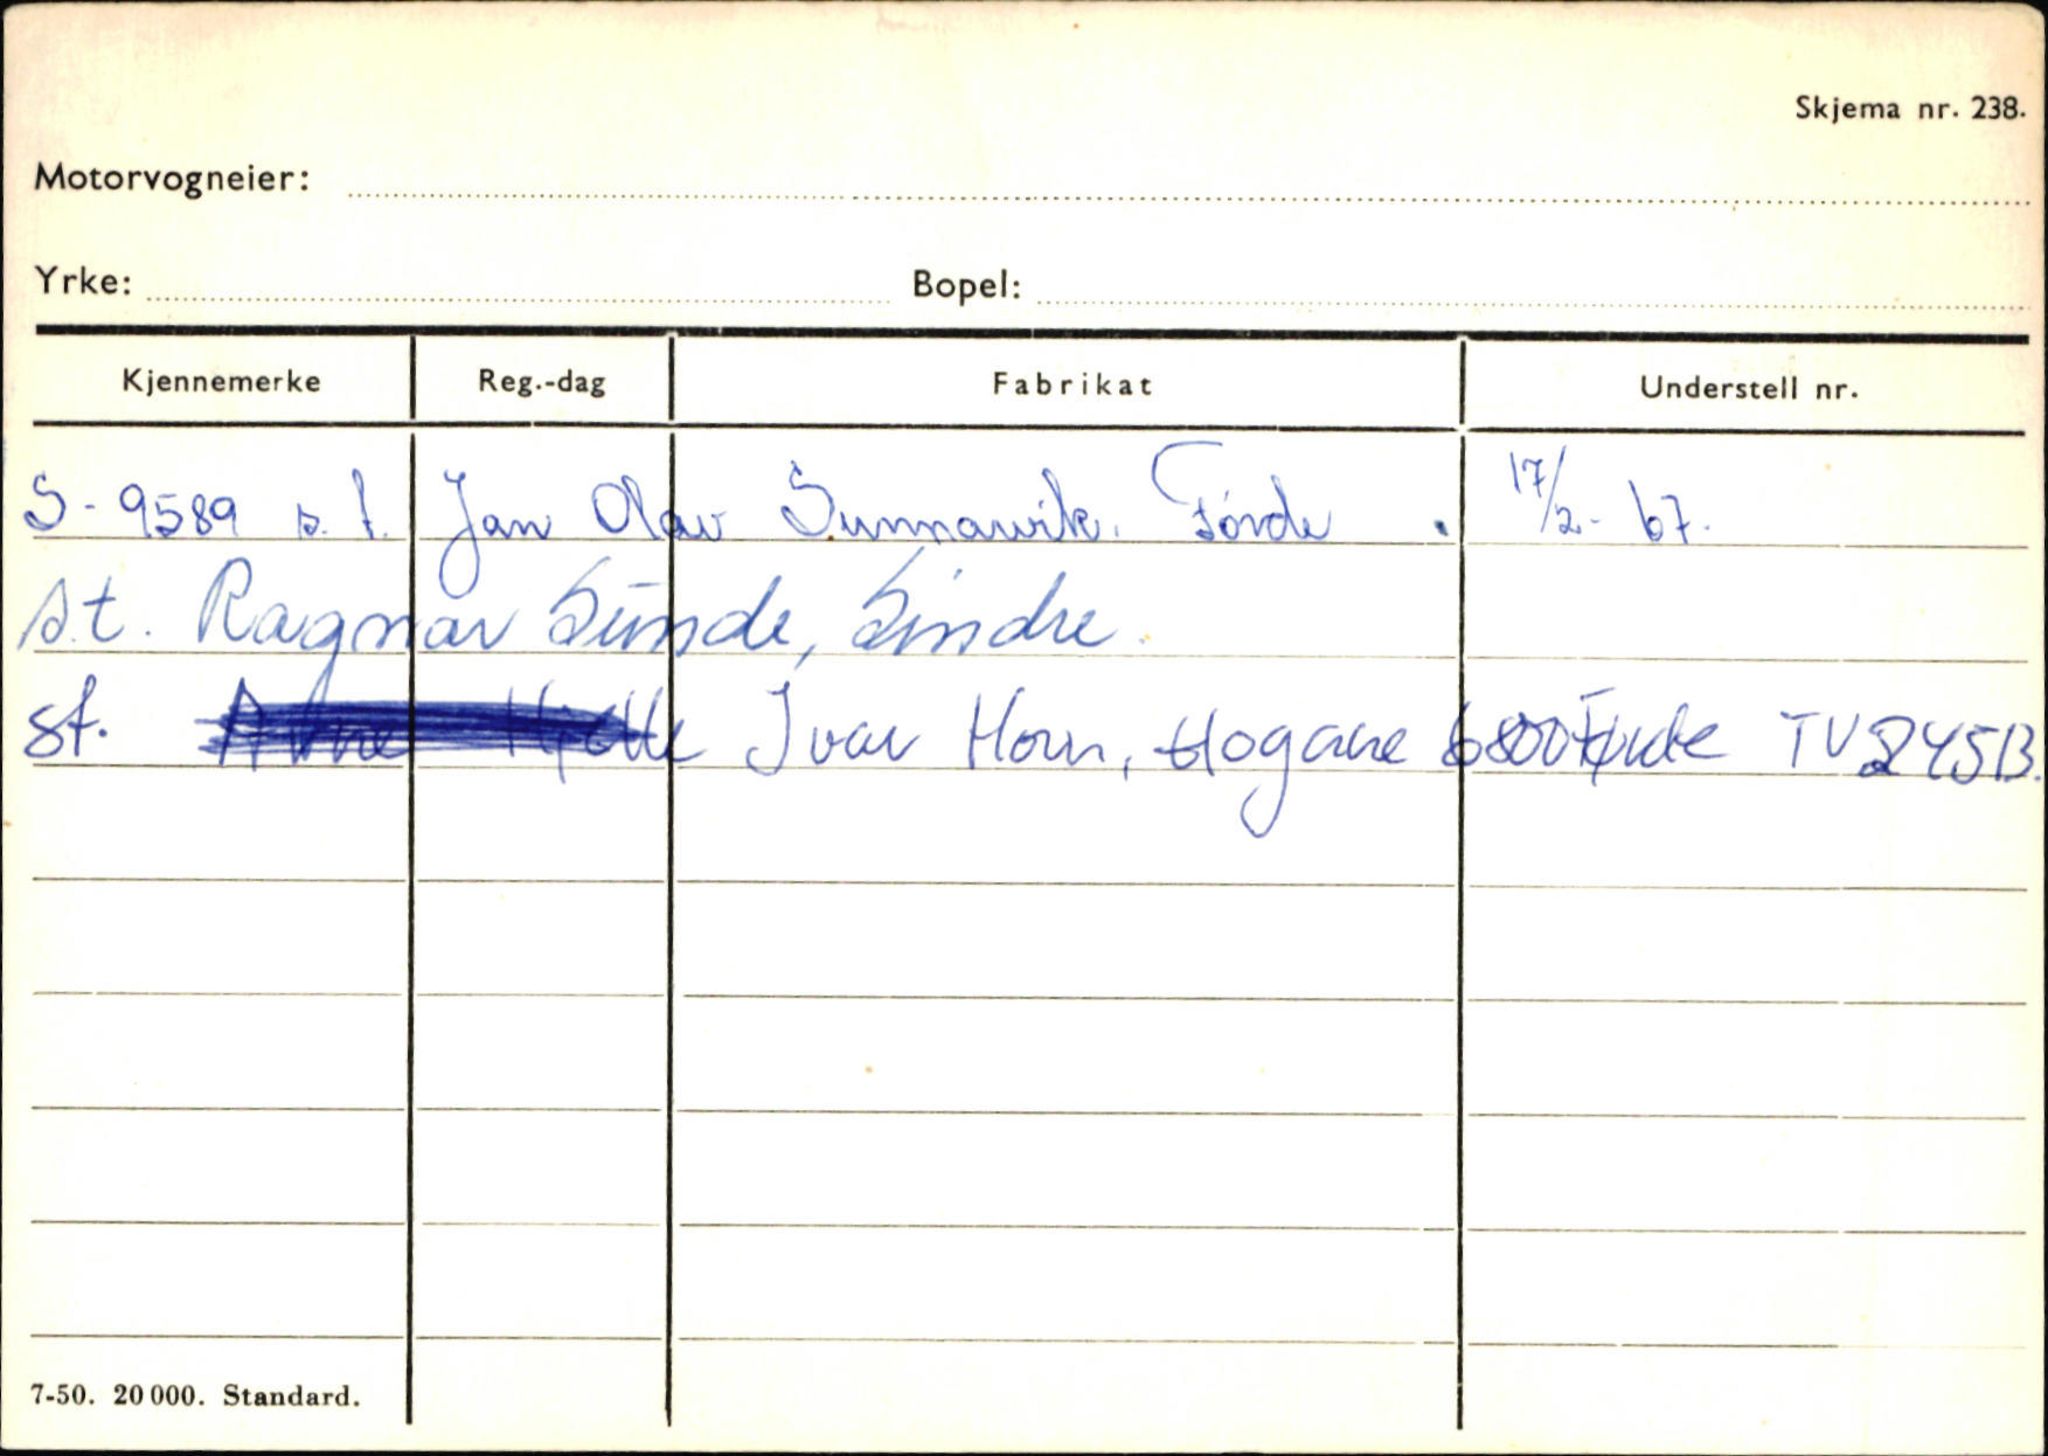 Skjema nr. 238.
Motorvogneier:
Yrke: Bopel:
Kjennemerke Reg.-dag Fabrikat Understell nr.
S-9589 s.t. Jan Olav Sunnarvik. Førde. 17/2-67.
s.t. Ragnar Sunde, Sindre.
st. Ivar Horn, Hogane 6800 Førde TV 245B.
7-50. 20 000. Standard.